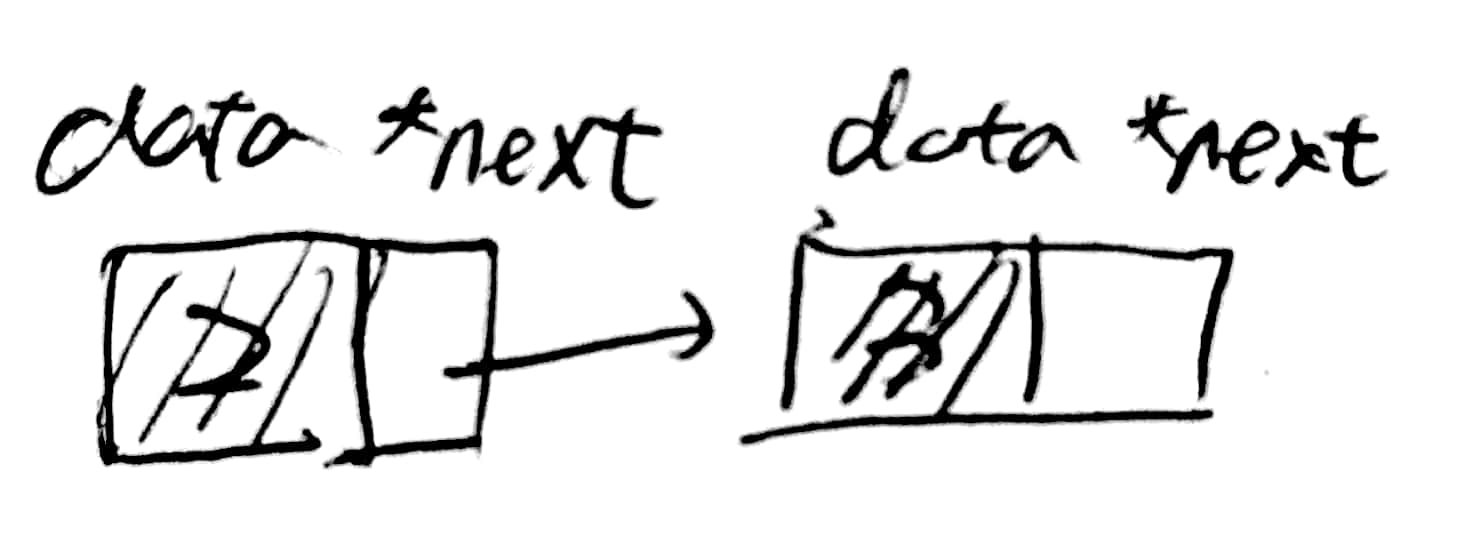 data *next data *next
2